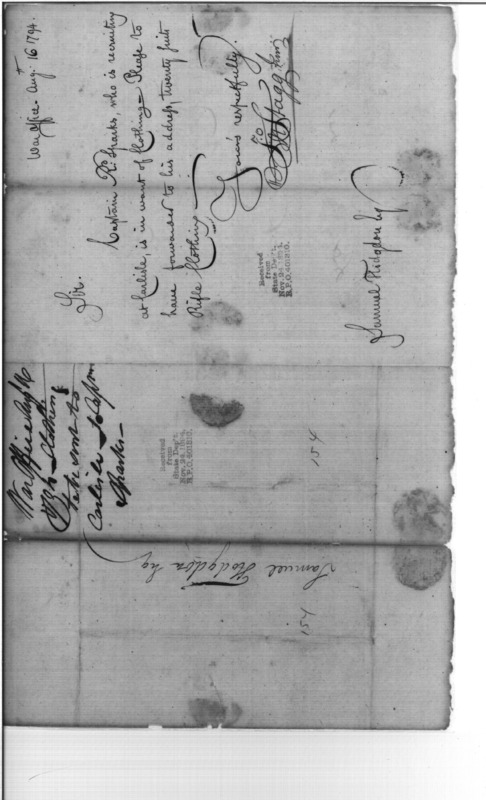 War office Augt. 16 1794.
Sir.
Captain Rd. Sparks, who is recruiting
at Carlisle, is in want of Clothing — Please to
have forwarded to his address, twenty suits
Rifle Clothing —
Yours respectfully.
Jno Stagg Junr
Samuel Hodgdon Esq
Received
from
State Dep't.
Nov. 24 1894.
R.P.O. 401210.
War Office Augt 16
Clothing
to be sent to
Carlisle to Capn
Sparks —
Received
from
State Dep't.
Nov. 24 1894.
R.P.O. 401210.
154
Samuel Hodgdon Esq
154